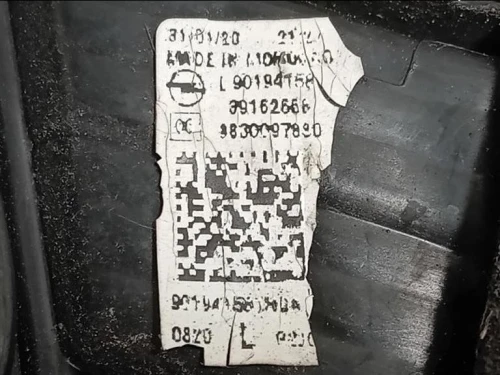 31/01/20 21
MADE IN MOROCCO
L 90194158
39162666
OE 9830097880
90194158
0820 L